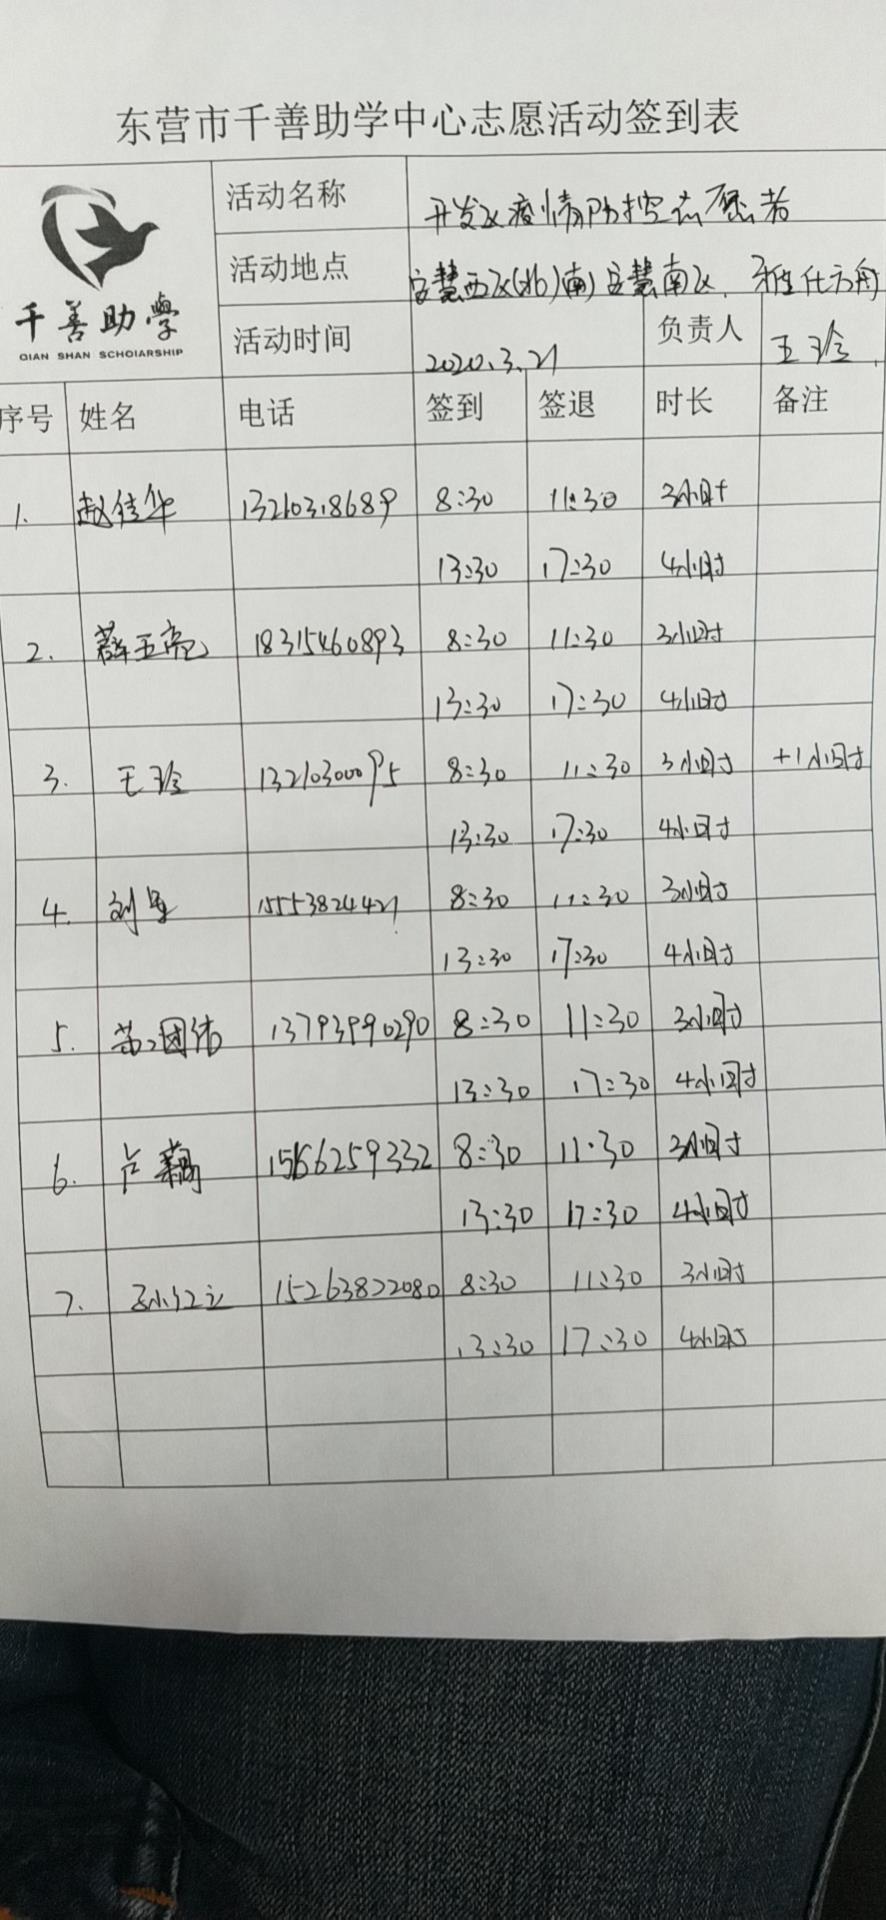 东营市千善助学中心志愿活动签到表
千善助學
QIAN SHAN SCHOIARSHIP
活动名称 开发区疫情防控志愿者
活动地点 安慧西区(北)(南) 安慧南区、雅仕方舟
活动时间 2020.3.21 负责人 王玲
序号 姓名 电话 签到 签退 时长 备注
1. 赵佳华 13210318689 8:30 11:30 3小时
13:30 17:30 4小时
2. 薛玉亮 18315460893 8:30 11:30 3小时
13:30 17:30 4小时
3. 王玲 13210300095 8:30 11:30 3小时 +1小时
13:30 17:30 4小时
4. 刘 15553824421 8:30 11:30 3小时
13:30 17:30 4小时
5. 13793990290 8:30 11:30 3小时
13:30 17:30 4小时
6. 卢 15166259332 8:30 11:30 3小时
13:30 17:30 4小时
7. 15263822080 8:30 11:30 3小时
13:30 17:30 4小时